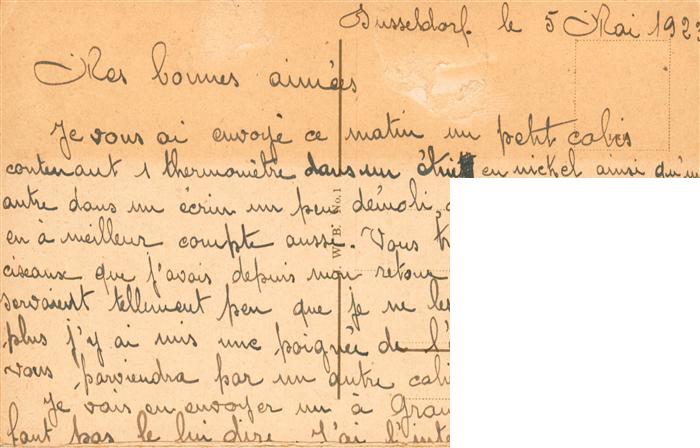 Dusseldorf le 5 Mai 1923
Mes bonnes aimées
Je vous ai envoyé ce matin un petit colis
contenant 1 thermomètre dans un étui en nickel ainsi qu'u
autre dans un écrin un peu démoli,
en à meilleur compte aussi. Vous tr
ciseaux que j'avais depuis mon retour
servaient tellement peu que je ne les
plus j'y ai mis une poignée de l'é
vous parviendra par un autre coli
Je vais en envoyer un à Gran
faut pas le lui dire. J'ai l'inte
W. B. No. 1